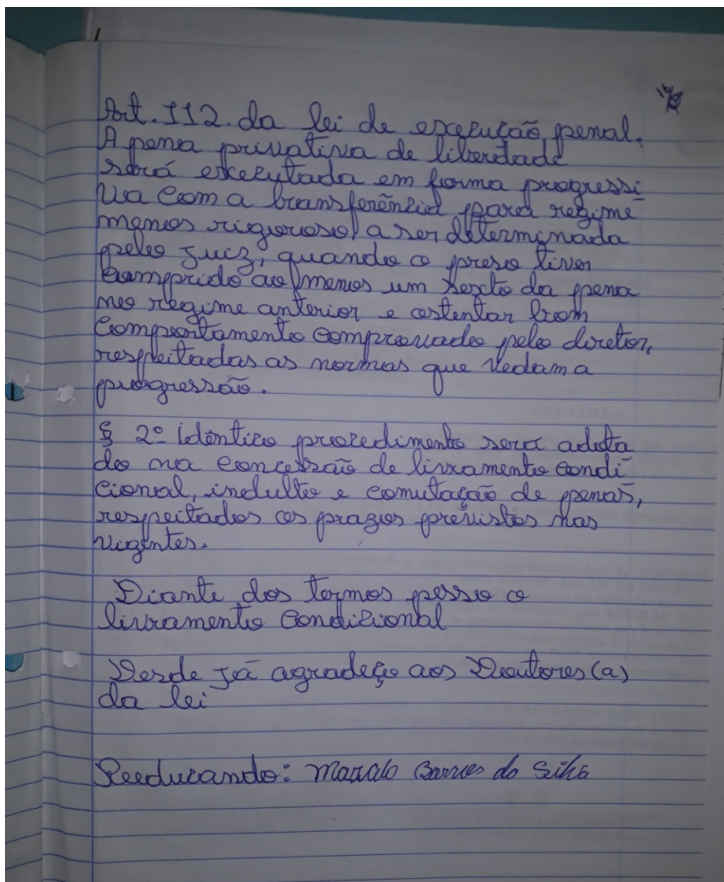 Art. 112. da lei de execução penal.
A pena privativa de liberdade
será executada em forma progressi
va com a transferência para regime
menos riguroso, a ser determinada
pelo Juiz, quando o preso tiver
cumprido ao menos um sexto da pena
no regime anterior e ostentar bom
comportamento comprovado pelo diretor,
respeitadas as normas que vedam a
progressão.
§ 2º idêntico procedimento será adota
do na concessão de livramento condi
cional, indulto e comutação de penas,
respeitados os prazos previstos nas
vigentes.
Diante dos termos posso o
livramento condicional
Desde já agradeço aos Doutores(a)
da lei
Reeducando: Marcelo Barros da Silva